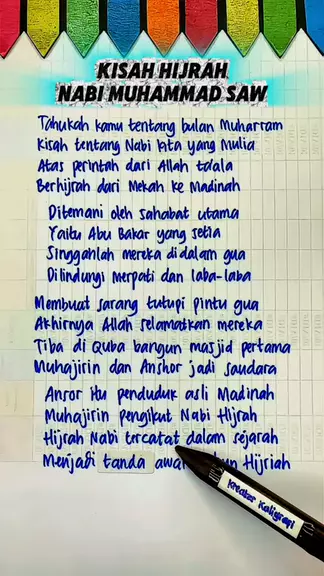 KISAH HIJRAH
NABI MUHAMMAD SAW
Tahukah kamu tentang bulan Muharram
Kisah tentang Nabi kita yang Mulia
Atas perintah dari Allah ta'ala
Berhijrah dari Mekah ke Madinah
Ditemani oleh sahabat utama
Yaitu Abu Bakar yang setia
Singgahlah mereka di dalam gua
Dilindungi Merpati dan laba-laba
Membuat sarang tutupi pintu gua
Akhirnya Allah selamatkan mereka
Tiba di Quba bangun masjid pertama
Muhajirin dan Anshor jadi saudara
Ansor itu penduduk asli Madinah
Muhajirin pengikut Nabi Hijrah
Hijrah Nabi tercatat dalam sejarah
Menjadi tanda Hijriah
Kreator Kaligrapi